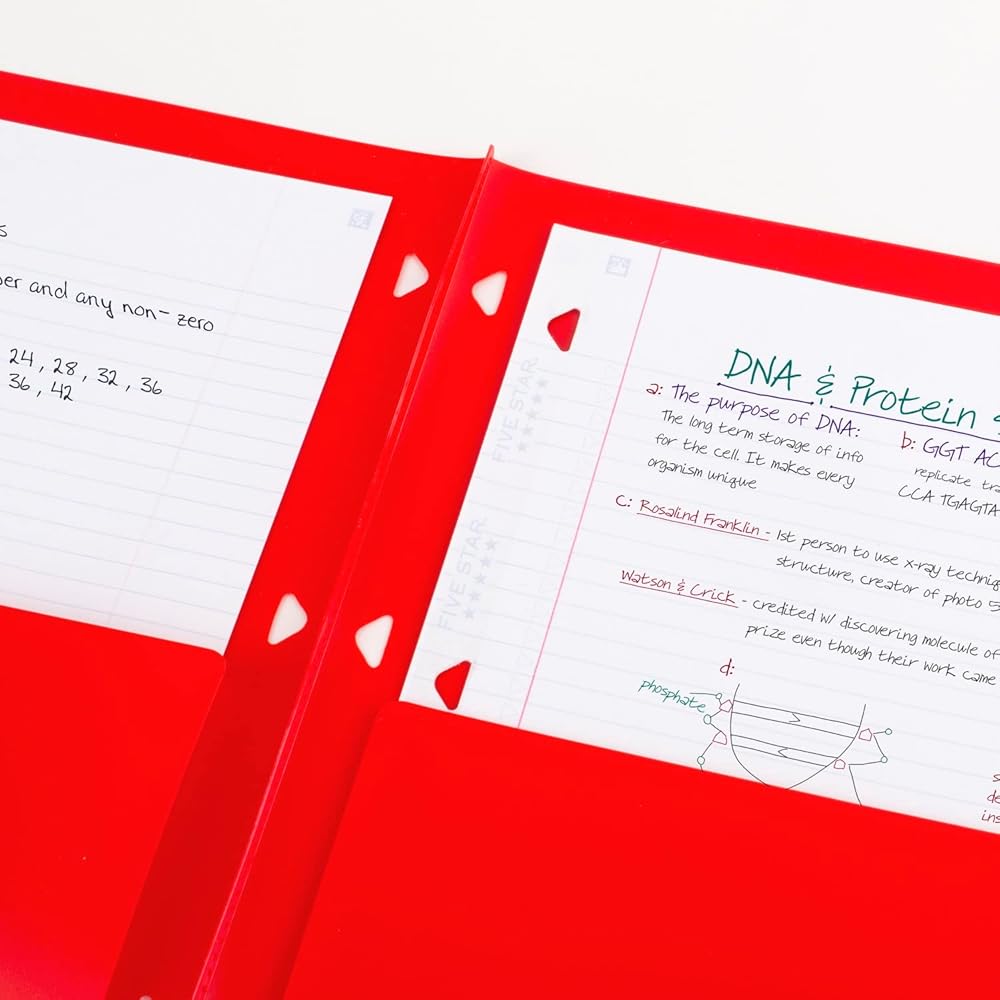 er and any non-zero
24, 28, 32, 36
36, 42
FIVE STAR.
FIVE STAR.
DNA & Protein
a: The purpose of DNA:
The long term storage of info
for the cell. It makes every
organism unique
b: GGT AC
replicate tra
CCA TGAGTA
c: Rosalind Franklin - 1st person to use x-ray techniq
structure, creator of photo 5
Watson & Crick - credited w/ discovering molecule of
prize even though their work came
d:
phosphate
s
de
ins